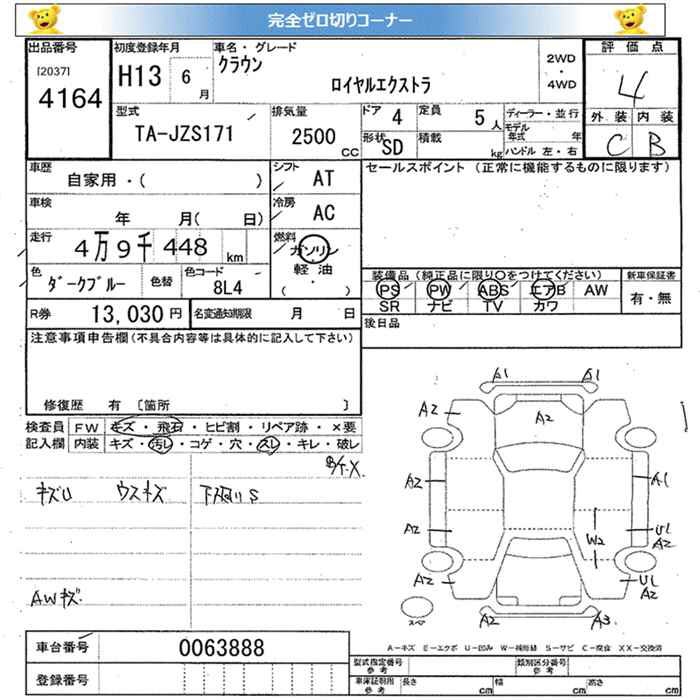 完全ゼロ切りコーナー
出品番号 初度登録年月 車名・グレード 2WD・4WD 評価点
[2037] 4164 H13 6月 クラウン ロイヤルエクストラ 4
型式 排気量 ドア 4 定員 5人 ディーラー・並行 外装 内装
TA-JZS171 2500cc 形状 SD 積載 kg モデル年式 年 ハンドル 左・右 C B
車歴 自家用・( ) シフト AT セールスポイント (正常に機能するものに限ります)
車検 年 月( 日) 冷房 AC
走行 4万9千448km 燃料 ガソリン 軽油 ( ・ )
色 ダークブルー 色替 色コード 8L4 装備品 (純正品に限り○をつけてください) 新車保証書
PS PW ABS エアB AW 有・無
SR ナビ TV カワ
R券 13,030円 名変通知期限 月 日 後日品
注意事項申告欄(不具合内容等は具体的に記入して下さい)
修復歴 有 〔箇所 〕
検査員 FW キズ・飛石・ヒビ割・リペア跡・×要
記入欄 内装 キズ・汚レ・コゲ・穴・スレ・キレ・破レ
キズU ウスキズ 下廻りS
AWキズ
A1 A1
A2 A2
A2 A1
A2 W2 U1 A2
A2 U1 A2
A2 A3
スペア
A-キズ E-エクボ U-凹み W-補修跡 S-サビ C-腐食 XX-交換済
車台番号 0063888
登録番号
型式指定番号 参考 類別区分番号 参考
車庫証明用 参考 長さ cm 幅 cm 高さ cm